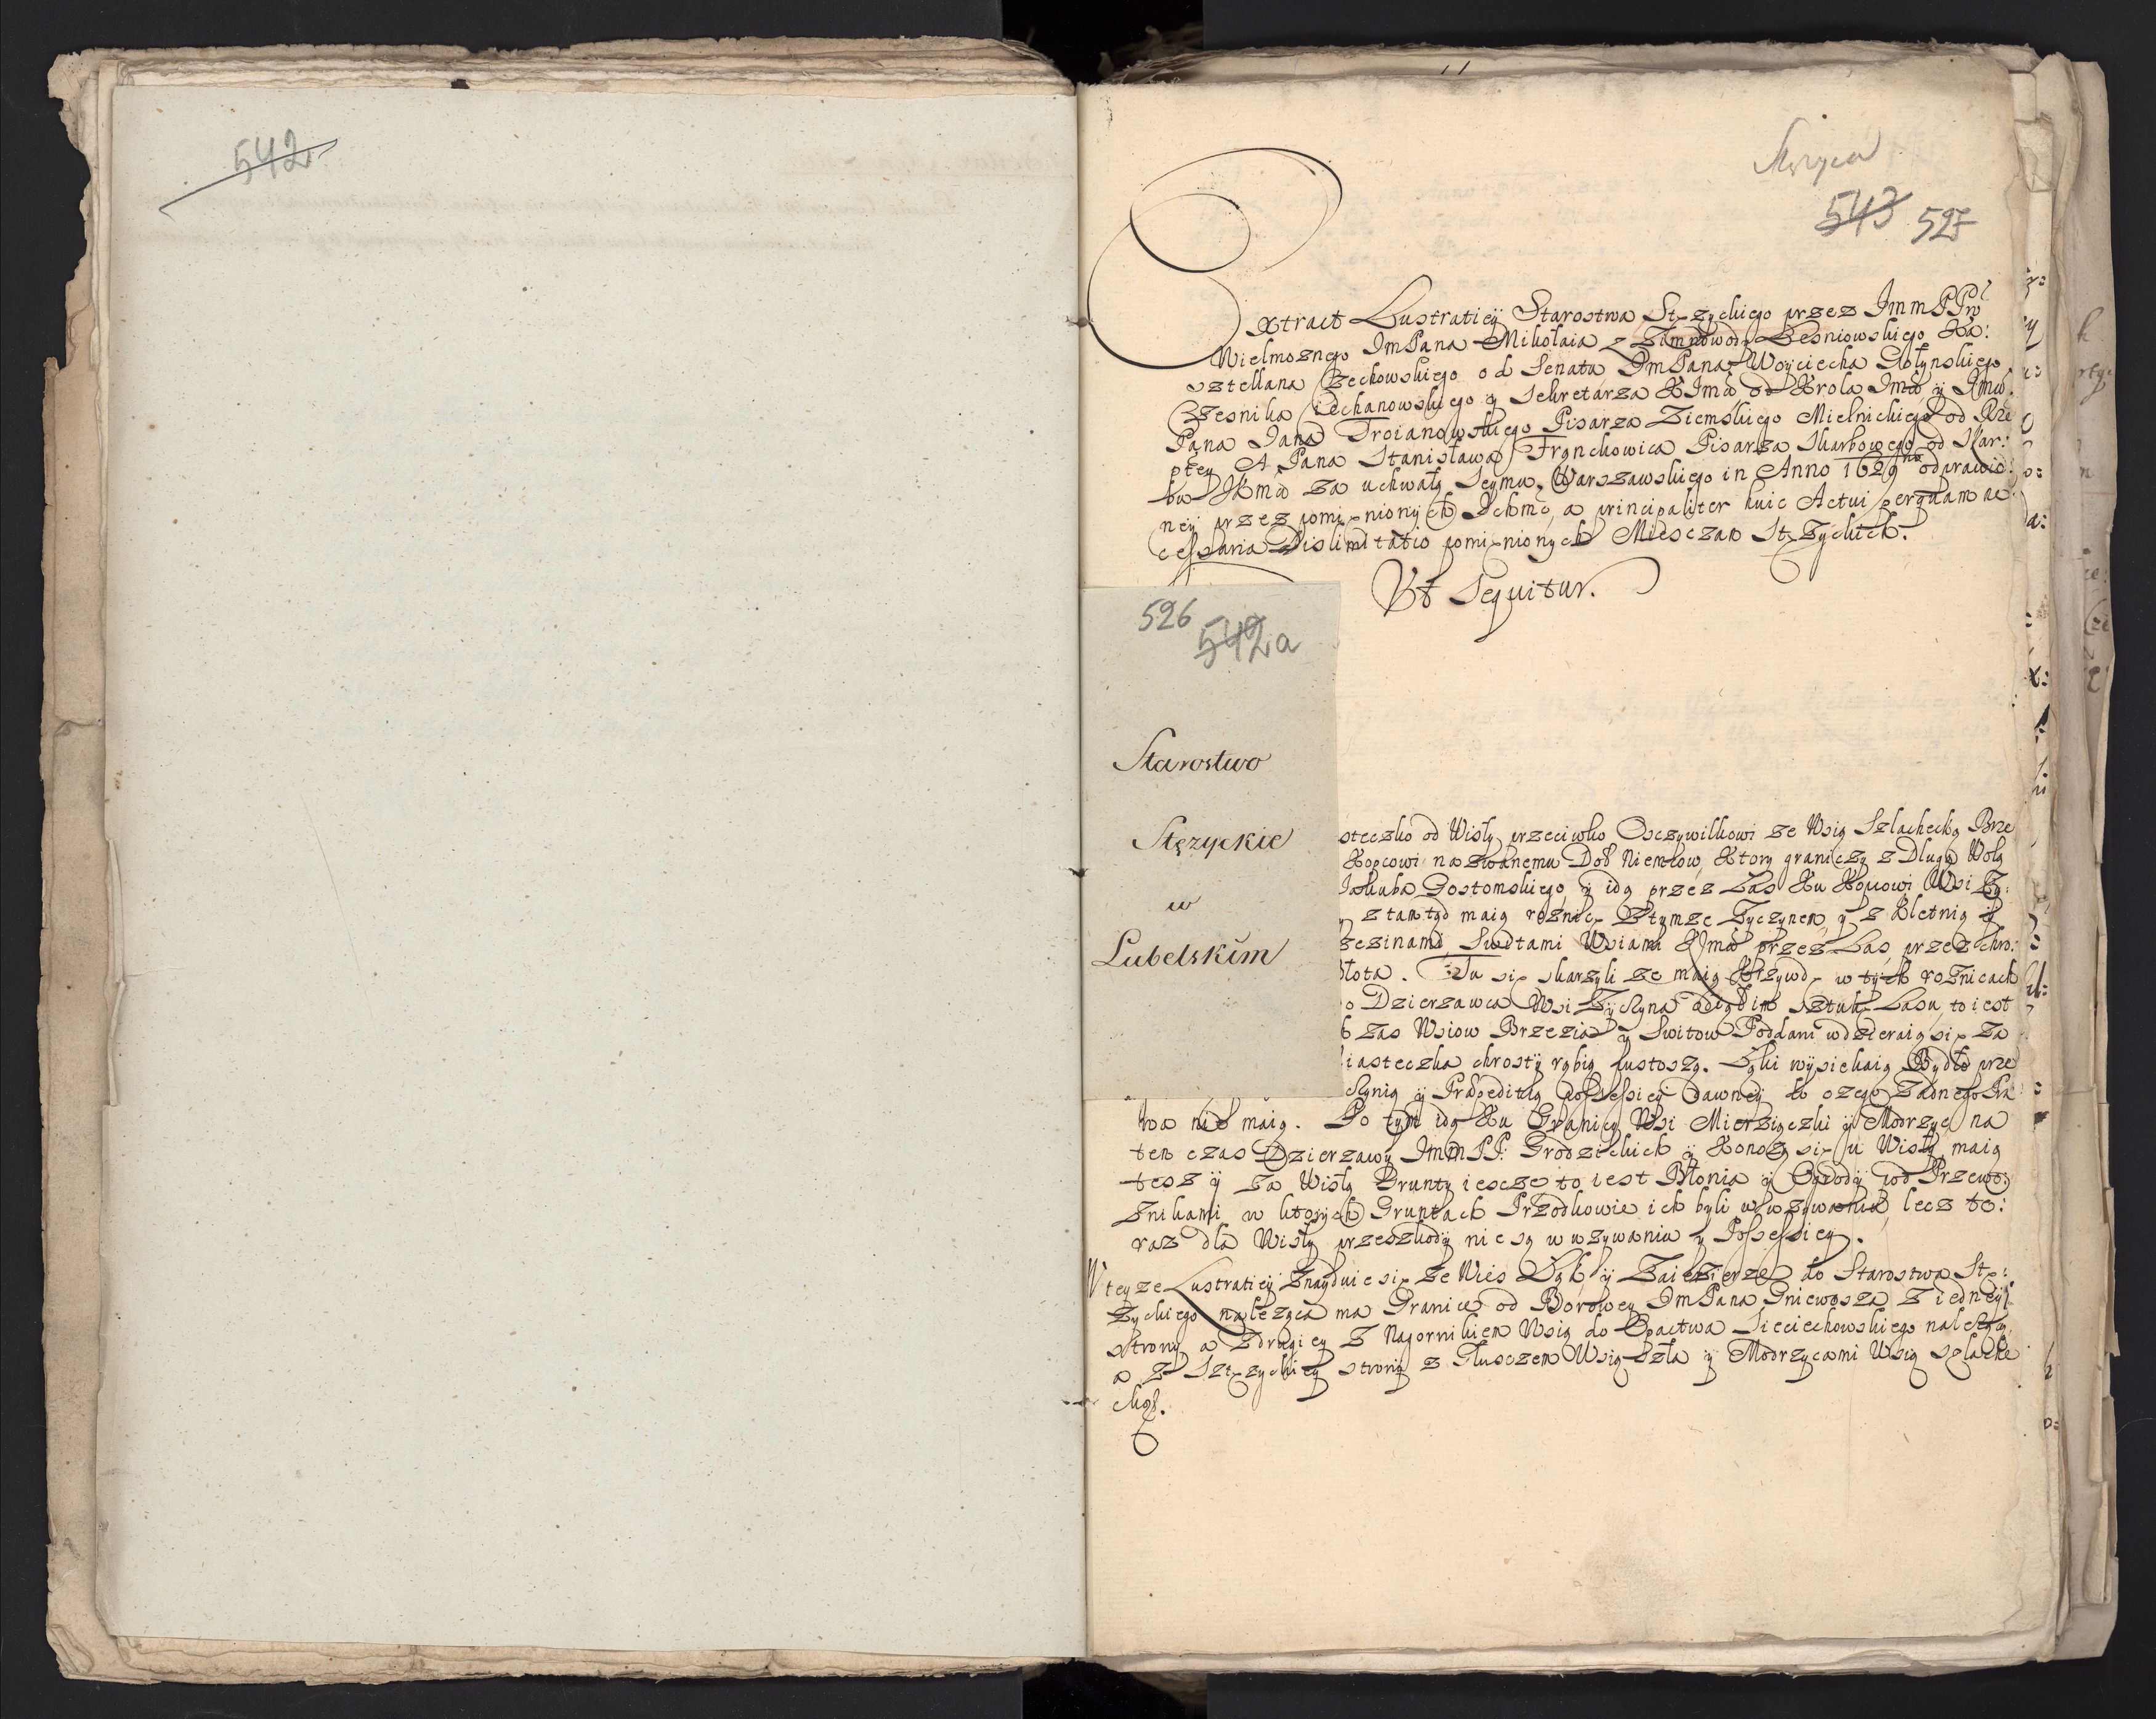 542
543 527
Extract Lustratiey Starostwa Stężyckiego przez ImmPPw
Wielmoznego ImPana Mikołaia z Zimnowody Lesniowskiego Ka:
sztellana Bechowskiego od Senatu, ImPana Woyciecha Golynskiego
Czesnika Ciechanowskiego y Sekretarza KIMci od Krola Imci y Imci
Pana Jana Troianowskiego Pisarza Ziemskiego Mielnickiego od Rze
ptey A Pana Stanisława Frąnckowica Pisarza Skarbowego od Skar:
bu JKmci za uchwałą Seymu, Warszawskiego in Anno 1629no odprawio:
ney przez pomięnionych Ichmc, a principaliter huic Actui perquam ne
cessaria Dislimitatio pomięnionych Miesczan Stęzyckich.
Ut Sequitur.
526
542a
Starostwo
Stężyckie
w
Lubelskim
steczko od Wisły przeciwko Osczywilkowi ze Wsią Szlachecką Brze
Kopcowi nazwanemu Dob Niemłow, Ktory graniczy z Długą Wolą
Jakuba Gostomskiego, y idą przez Las Ku Kopcowi Wsi Zy:
ztamtąd maią roznicę Ztymze Zyczynem, y z Kletnią y
zezinami, Switami Wsiami KJmci przez Las, przez chro:
błota. Tu się skarzyli ze maią Krzywdę w tych roznicach
o Dzierzawca Wsi Zyczyna odiął im sztukę Lasu, to iest
zas Wsiow Brzezin y Switow Poddani wdzieraią się Za
iasteczka chrosty rąbią pustoszą. Łąki wysiekaią Bydło prze
czynią y Præpeditią possessiey dawney do czego Zadnego Pra
wa nie maią. Po tym idą Ku Granicy Wsi Mierziączki y Modrzyc na
ten czas Dzierzawy ImmPP. Grodzickich y Konczą się u Wisły maią
tesz y Za Wisłą Grunty iescze to iest Błonia y Ogrody pod Przewo:
Znikami w ktorych Gruntach Przodkowie ich byli w wzywaniu, lecz te:
raz dla Wisły przeszkody nie są w wzywaniu y Possessiey.
W teyze Lustratiey Znayduie się Ze Wies Łąk y Zaiezierze do Starostwa Stę:
Zyckiego naleząca ma Granice od Borowey ImPana Gniewosza Z iedney
strony a Zdrugiey Z Nagornikiem Wsią do Opactwa Sieciechowskiego nalezącą,
a Z Sztęzyckiey strony z Tłusczem Wsią Szla y Modrzycami Wsią szlache
cką.